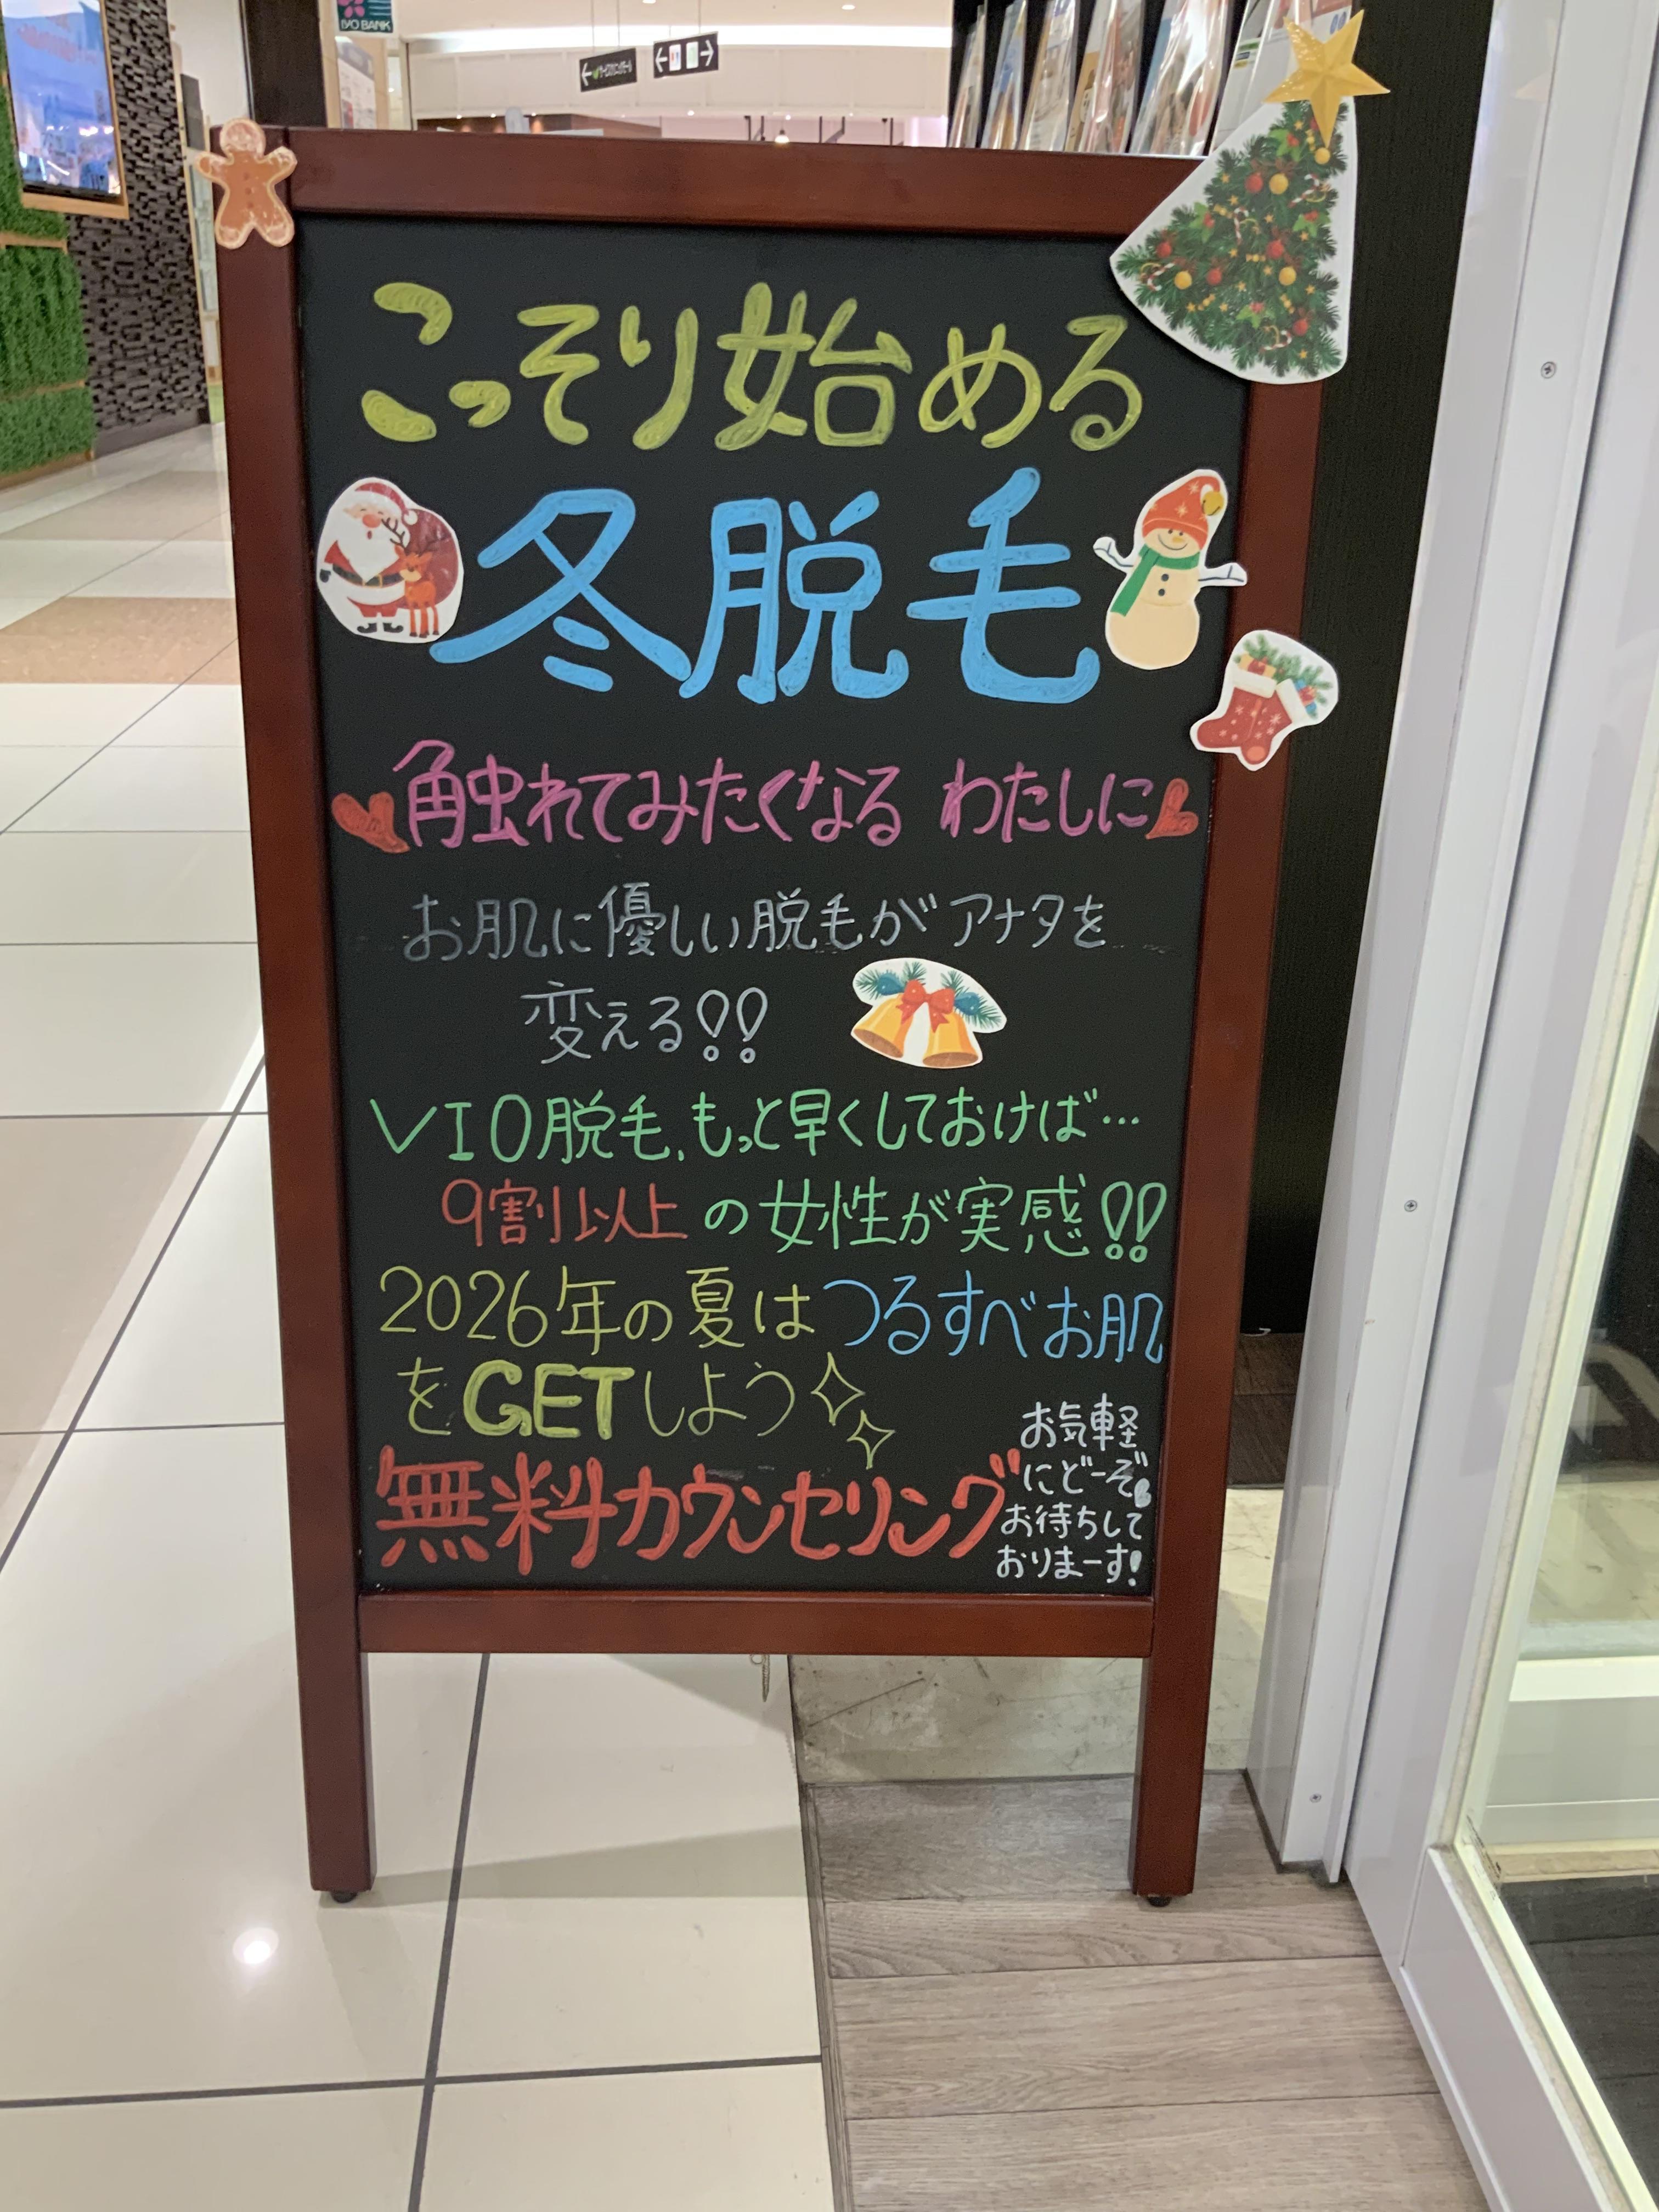 IYO BANK
こっそり始める
冬脱毛
触れてみたくなる わたしに
お肌に優しい脱毛がアナタを
変える!!
VIO脱毛、もっと早くしておけば…
9割以上の女性が実感!!
2026年の夏はつるすべお肌
をGETしよう
無料カウンセリング
お気軽
にどーぞ
お待ちして
おりまーす!